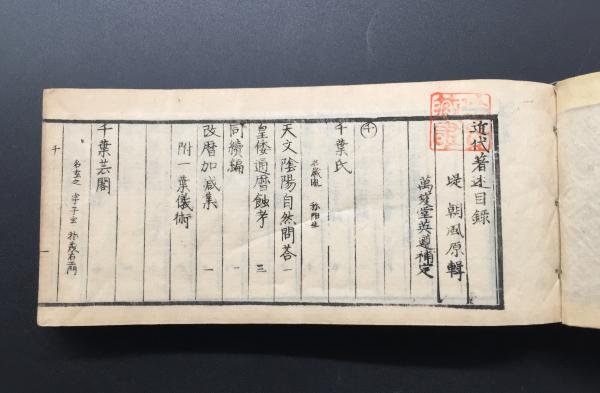 近代著述目録
堤朝風原輯
萬笈堂英遵補定
チ
千葉氏
名歳胤 称陽生
天文陰陽自然問答 一
皇倭通暦蝕考 三
同續編
改暦加減集 一
附一葉儀術
千葉芸閣
名玄之 字子玄 称茂右エ門
千
一